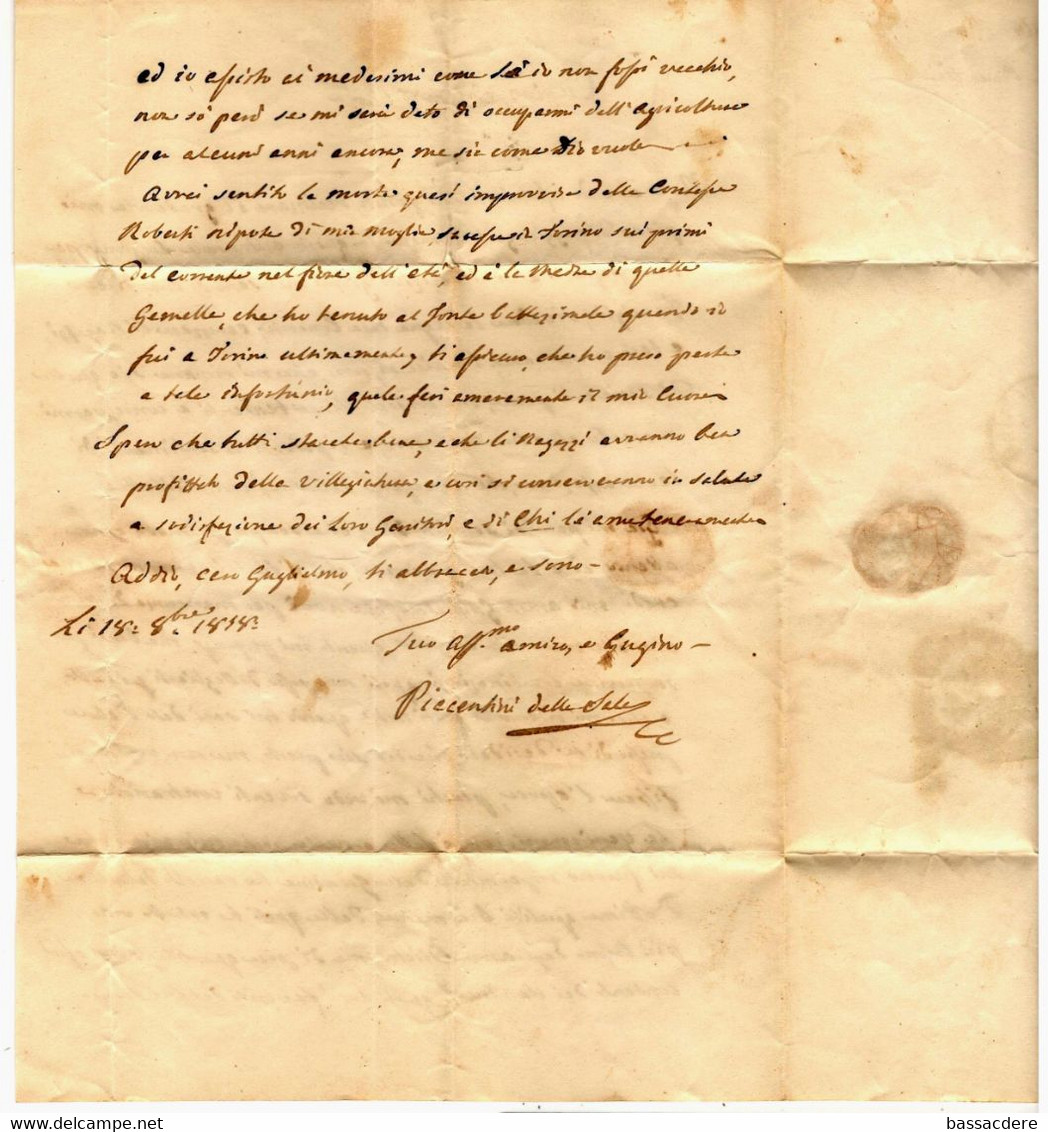 ed io assisto ai medesimi come se io non fossi vecchio,
non só peró se mi sará dato di occuparmi dell'Agricoltura
per alcuni anni ancora, ma sia come Dio vuole
Avrei sentito la morte quasi improvvisa della Contessa
Roberti nipote di mia moglie, successa in Torino sui primi
del corrente nel fiore dell'etá, ed é la Madre di quelle
Gemelle, che ho tenuto al Fonte battesimale quando io
fui a Torino ultimamente, ti assicuro, che ho preso parte
a tale infortunio, quale ferí amaramente il mio Cuore
Spero che tutti starete bene, e che li Ragazzi avranno ben
profittato della Villegiatura, e cosí si conserveranno in salute
a sodisfazione dei Loro Genitori, e di Chi lí ama teneramente
Addio, caro Guglielmo, ti abbraccio, e sono -
Li 18: 8bre 1838:
Tuo Aff.mo amico, e Cugino -
Piacentini della Sala
bassacdere